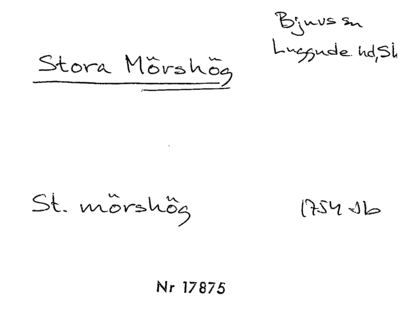 Bjuvs sn
Luggude hd, Sk
Stora Mörshög
St. mörshög 1754 Jb
Nr 17875